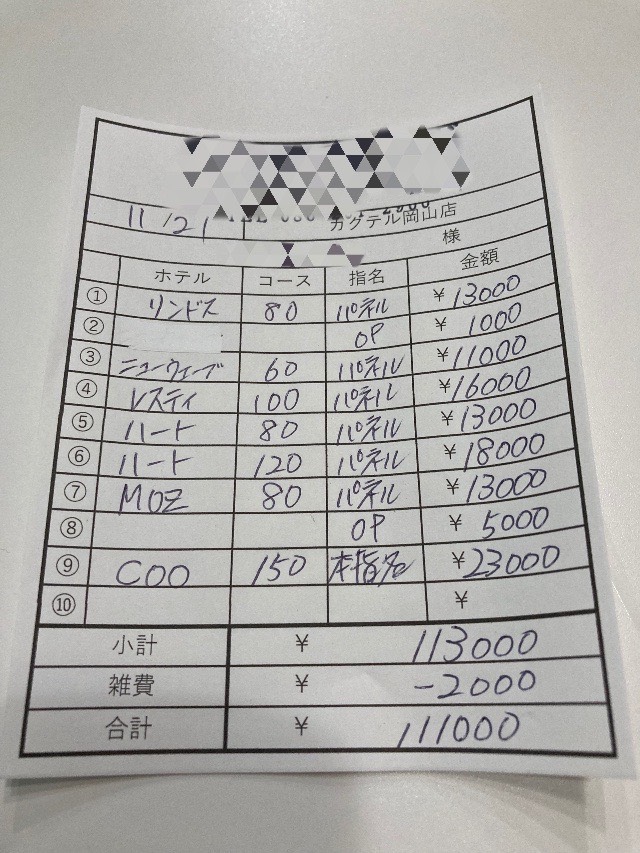 11/21 カクテル岡山店
様
ホテル コース 指名 金額
① リンドス 80 パネル ¥13000
② OP ¥1000
③ ニューウェーブ 60 パネル ¥11000
④ レスティ 100 パネル ¥16000
⑤ ハート 80 パネル ¥13000
⑥ ハート 120 パネル ¥18000
⑦ MOZ 80 パネル ¥13000
⑧ OP ¥5000
⑨ COO 150 本指名 ¥23000
⑩ ¥
小計 ¥ 113000
雑費 ¥ -2000
合計 ¥ 111000